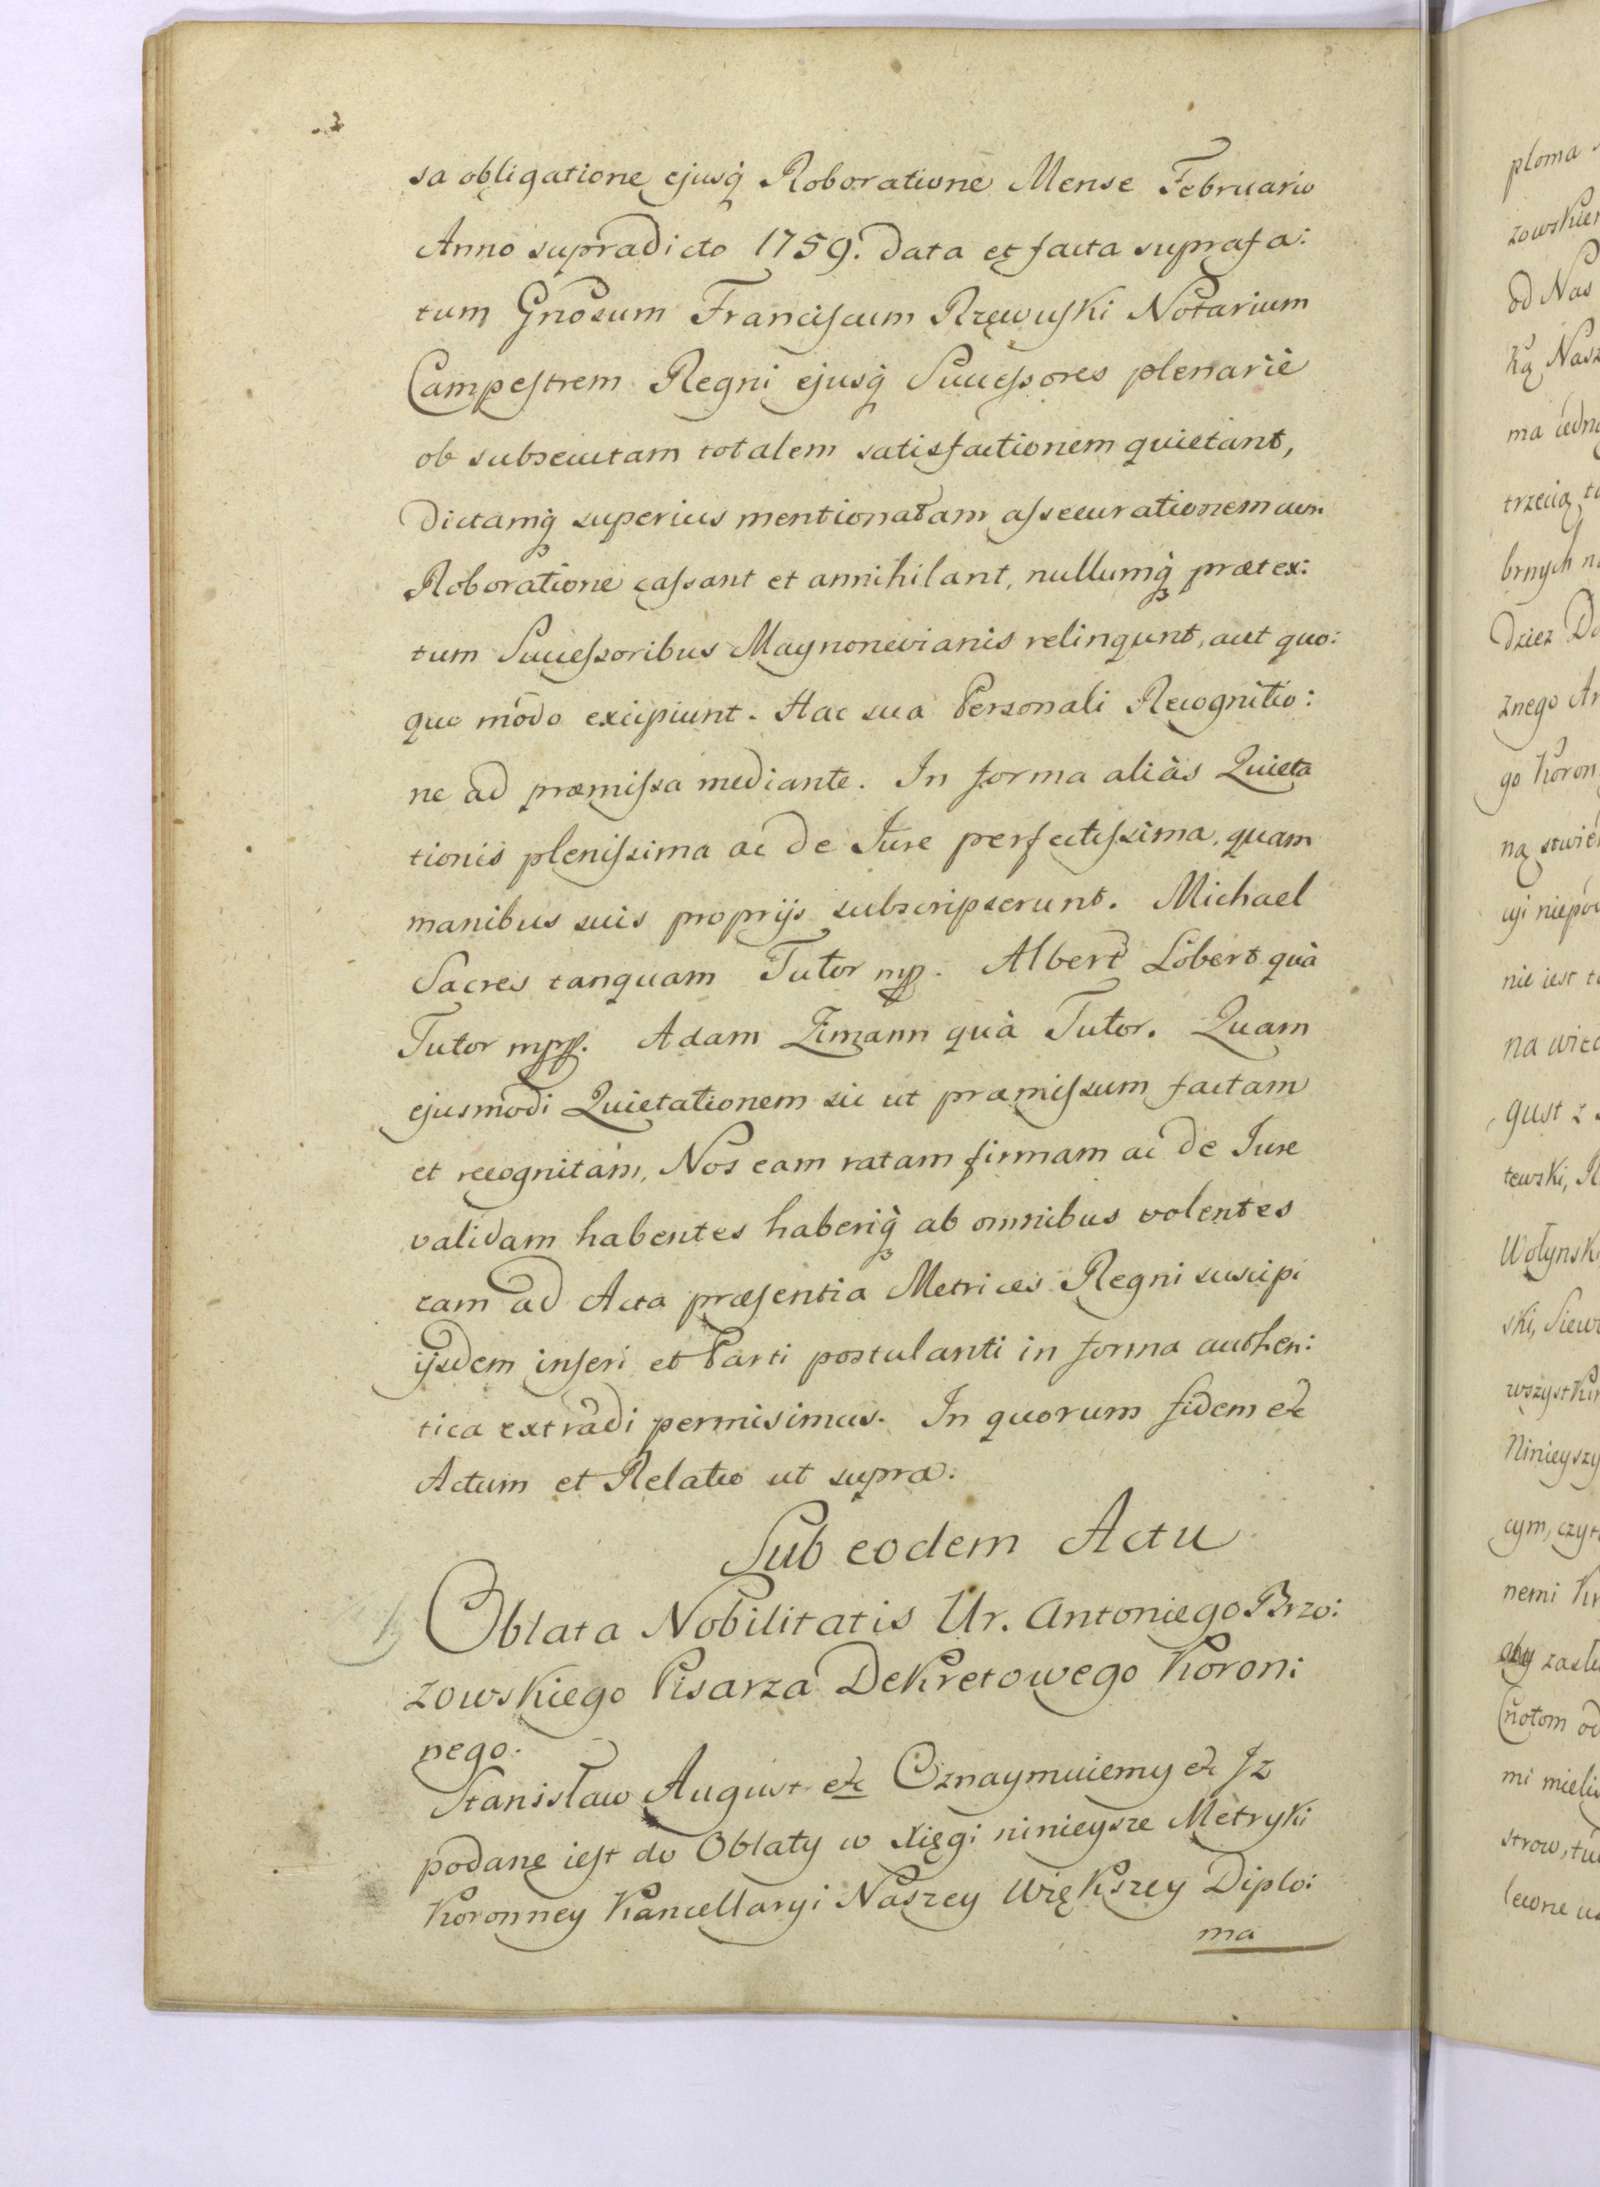 sa obligatione ejusq̃ Roboratione Mense Februario
Anno supradicto 1759. data et facta suprafa:
tum Gnosum Franciscum Rzewuski Notarium
Campestrem Regni ejusq̃ Successores plenarie
ob subsecutam totalem satisfactionem quietant,
dictamq̃ superius mentionatam assecurationem cum
Roboratione cassant et annihilant, nullumq̃ prætex:
tum Successoribus Magnonevianis relinqunt, aut quo:
quo modo excipiunt. Hac sua Personali Recognitio:
ne ad præmissa mediante. In forma aliàs Quieta
tionis plenissima ac de Jure perfectissima, quam
manibus suis proprijs subscripserunt. Michael
Sacres tanquam Tutor mpp. Albert Löbert quà
Tutor mppp. Adam Zimann quà Tutor. Quam
ejusmodi Quietationem sic ut præmissum factam
et recognitam, Nos eam ratam firmam ac de Jure
validam habentes haberiq̃ ab omnibus volentes
eam ad Acta præsentia Metrices Regni suscipi
ijsdem inseri et Parti postulanti in forma authen:
tica extradi permisimus. In quorum fidem etc
Actum et Relatio ut supra.
Sub eodem Actu
Oblata Nobilitatis Ur. Antoniego Brzo:
zowskiego Pisarza Dekretowego Koron:
nego.
Stanisław August etc Oznaymuiemy etc Jz
podane iest do Oblaty w Xięgi ninieysze Metryki
Koronney Kancellaryi Naszey Większey Diplo:
ma
ploma
od Nas
ką Nasz
trzecią
brnych
znego
go Koron
nie iest
na
gust z
Wołynsk
wszystkim
Ninieyszy
cym, czyt
nemi
aby
Cnotom
strow,